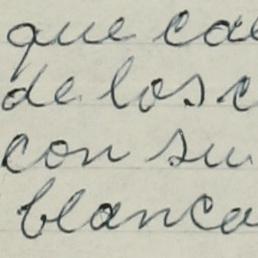 que cae
de los c
con su
blanca